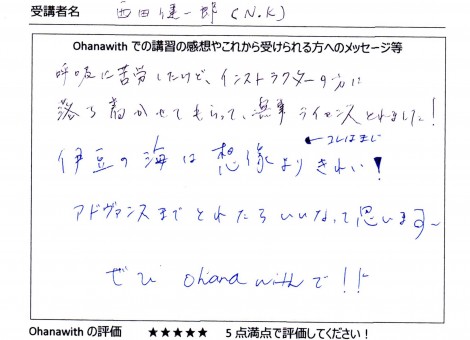 受講者名 西田健一郎(N.K)
Ohanawith での講習の感想やこれから受けられる方へのメッセージ等
呼吸に苦労したけど、インストラクターの方に
落ち着かせてもらって、無事ライセンスとれました!
←コレはまじ
伊豆の海は想像よりきれい!
アドヴァンスまでとれたらいいなって思いますー
ぜひ ohana withで!!
Ohanawith の評価 ★★★★★ 5 点満点で評価してください!